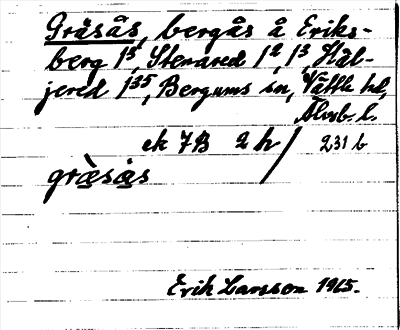 Gråsås, bergås å Eriks-
berg 1⁵, Stenared 1², 1³ Häl-
jered 1³⁵, Bergums sn, Vättle hd,
Älvsb. l.
ek 7B 2h / 231 b
gràsås
Erik Larsson 1965.